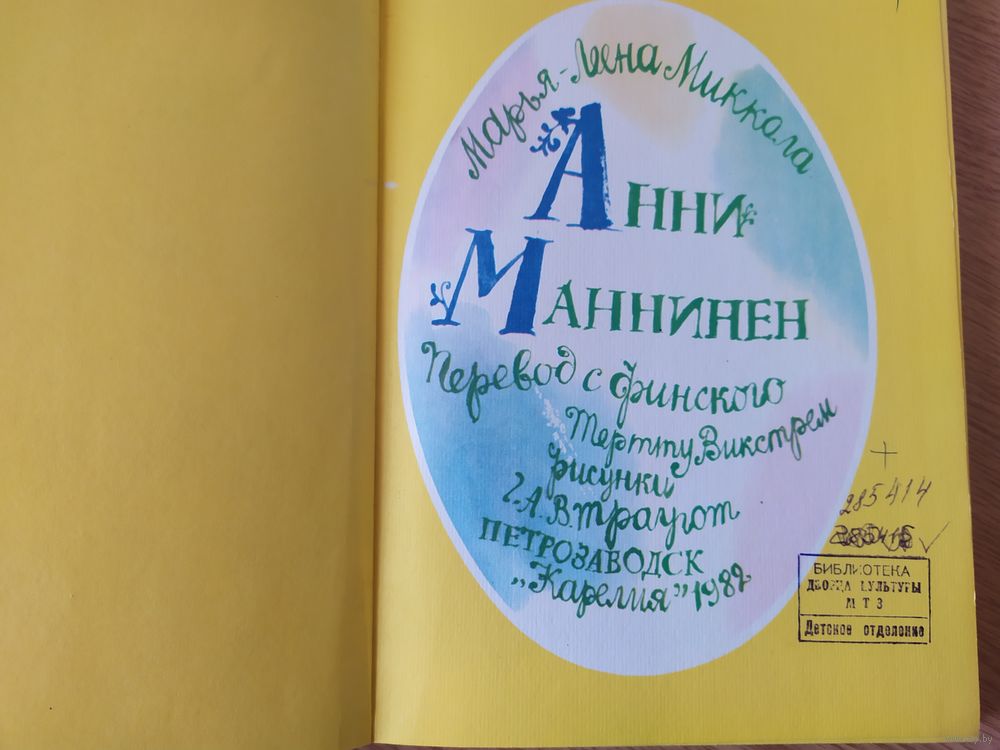 Марья-Леена Миккола
Анни
Маннинен
Перевод с финского
Терттту Викстрем
рисунки
Г.А.В.Траугот
ПЕТРОЗАВОДСК
„Карелия” 1982
285414
БИБЛИОТЕКА
ДВОРЦА КУЛЬТУРЫ
МТЗ
Детское отделение